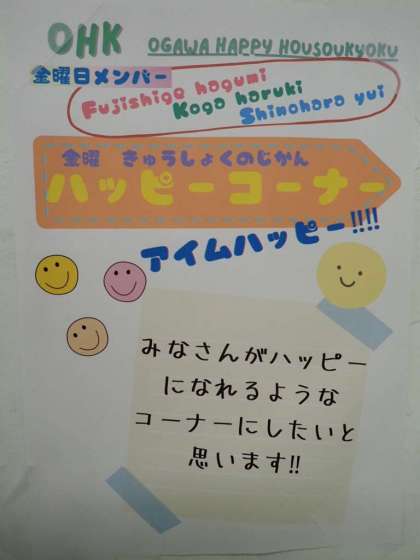 OHK OGAWA HAPPY HOUSOUKYOKU
金曜日メンバー
Fujishige hagumi
Koga haruki
Shinohara yui
金曜 きゅうしょくのじかん
ハッピーコーナー
アイムハッピー!!!!
みなさんがハッピー
になれるような
コーナーにしたいと
思います!!